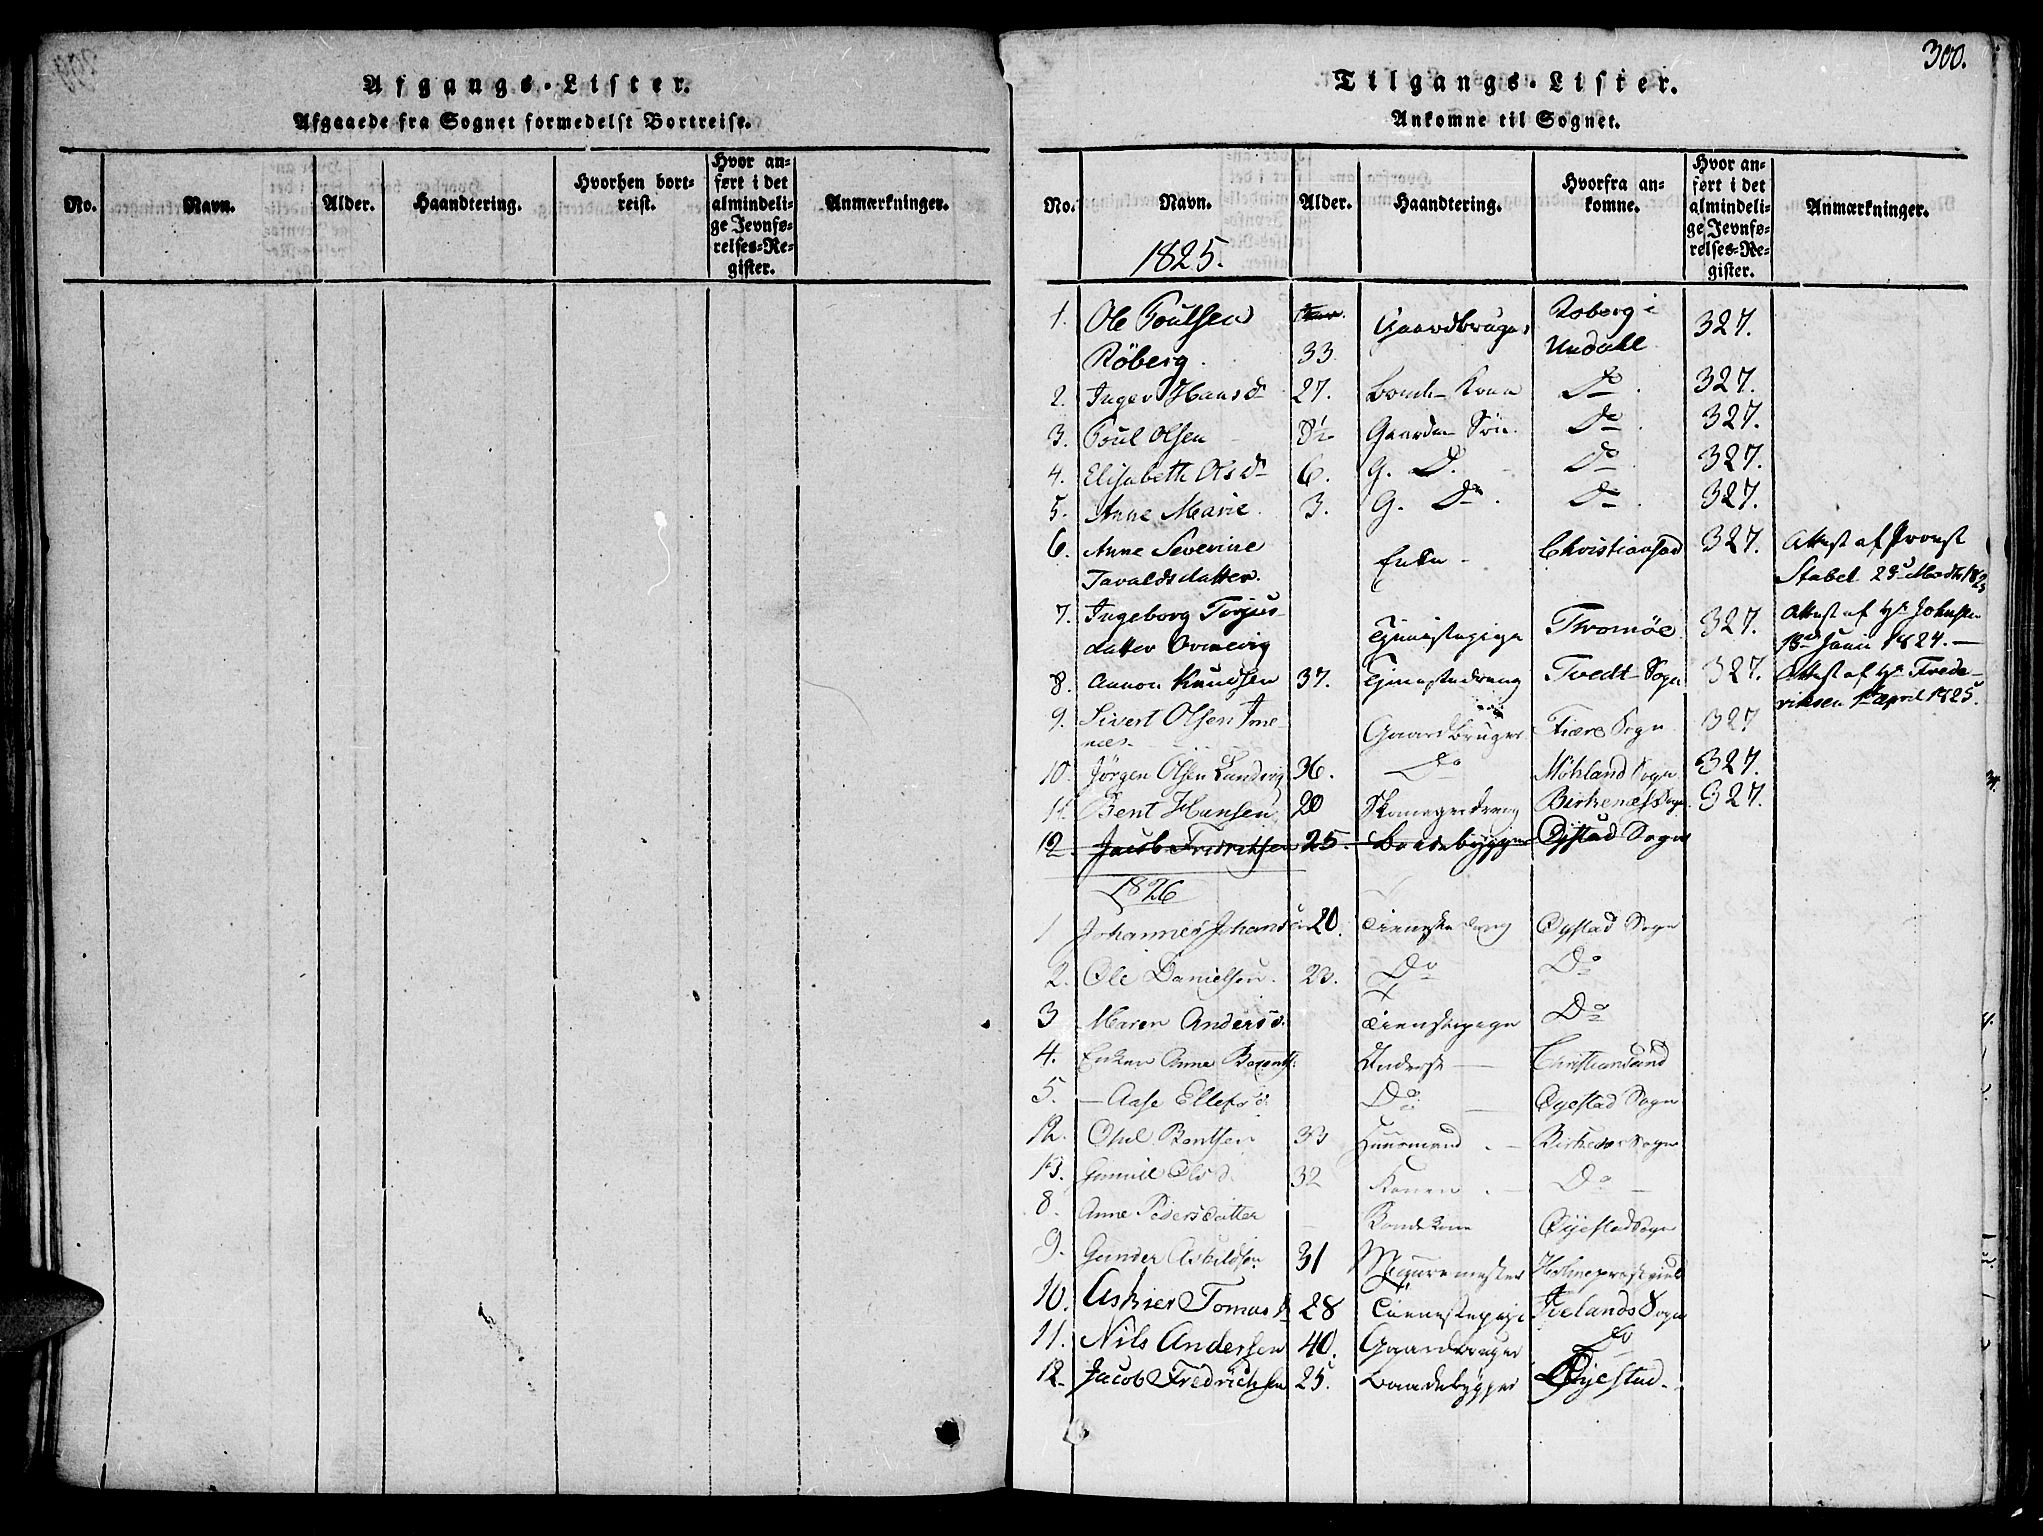 Afgangs-Lister.
Afgaaede fra Sognet formedelst Bortreise.
No. Navn. Alder. Haandtering. Hvorhen bortreist. Hvor anført i det almindelige Jevnførelses-Register. Anmærkninger.
300.
Tilgangs-Lister.
Ankomne til Sognet.
No. Navn. Alder. Haandtering. Hvorfra ankomne. Hvor anført i det almindelige Jevnførelses-Register. Anmærkninger.
1825.
1. Ole Poulsen Gaardbruger Roberg i 327.
Röberg. 33 Undahl
2. Inger Hansd 27. Bonde Kone Do. 327.
3. Poul Olsen 8½ Gaardm Sön. Do. 327.
4. Elisabeth Olsd 6. G. D. Do 327.
5. Anne Marie 3. G. Dr. Do. 327.
6. Anne Severine Enke Christiansad 327. Attest af Provst
Tavaldsdatter. Stabel
7. Ingeborg Torjus- Tjenistepige Tromöe 327. Attest af Hr
datter 18de Juni 1824.
8. Knudsen 37. Tjenistedreng Tvedt Sogn 327. Attest af Hr Frede-
riksen 1te April 1825.
9. Sivert Olsen Ime- Gaardbruger Fiære Sogn 327
næs
10. Jörgen Olsen Lundvig 36. Do Möhland Sogn 327.
11. Bent Hansen 20 Skomagerdreng Birkenæs Sogn. 327.
12. Jacob Fredrichsen 25. Baadebygger Oystad Sogn
1826
1 Johannes Johans 20. Tieneste Oystad Sogn
2. Ole Danielsen. 23. Do Do
3 Maren Andersd. Tienestepige Do
4. Enken Anne Inderst Christiansand
5. — Aase Ellefsd. Do Oyestad Sogn
12. Bentsen 33 Huusmand Sogn
13. Gunnil Olsd. 32 Konen Do
8. Anne Pedersdatter Bondekone Oyestad Sogn
9. Gunder 31 Muuremester
10. Tomasd 28 Tienestepige Ivelands Sogn
11. Nils Andersen 40. Gaardbruger Do
12. Jacob Fredrichsen 25. Baadebygger Oyestad.